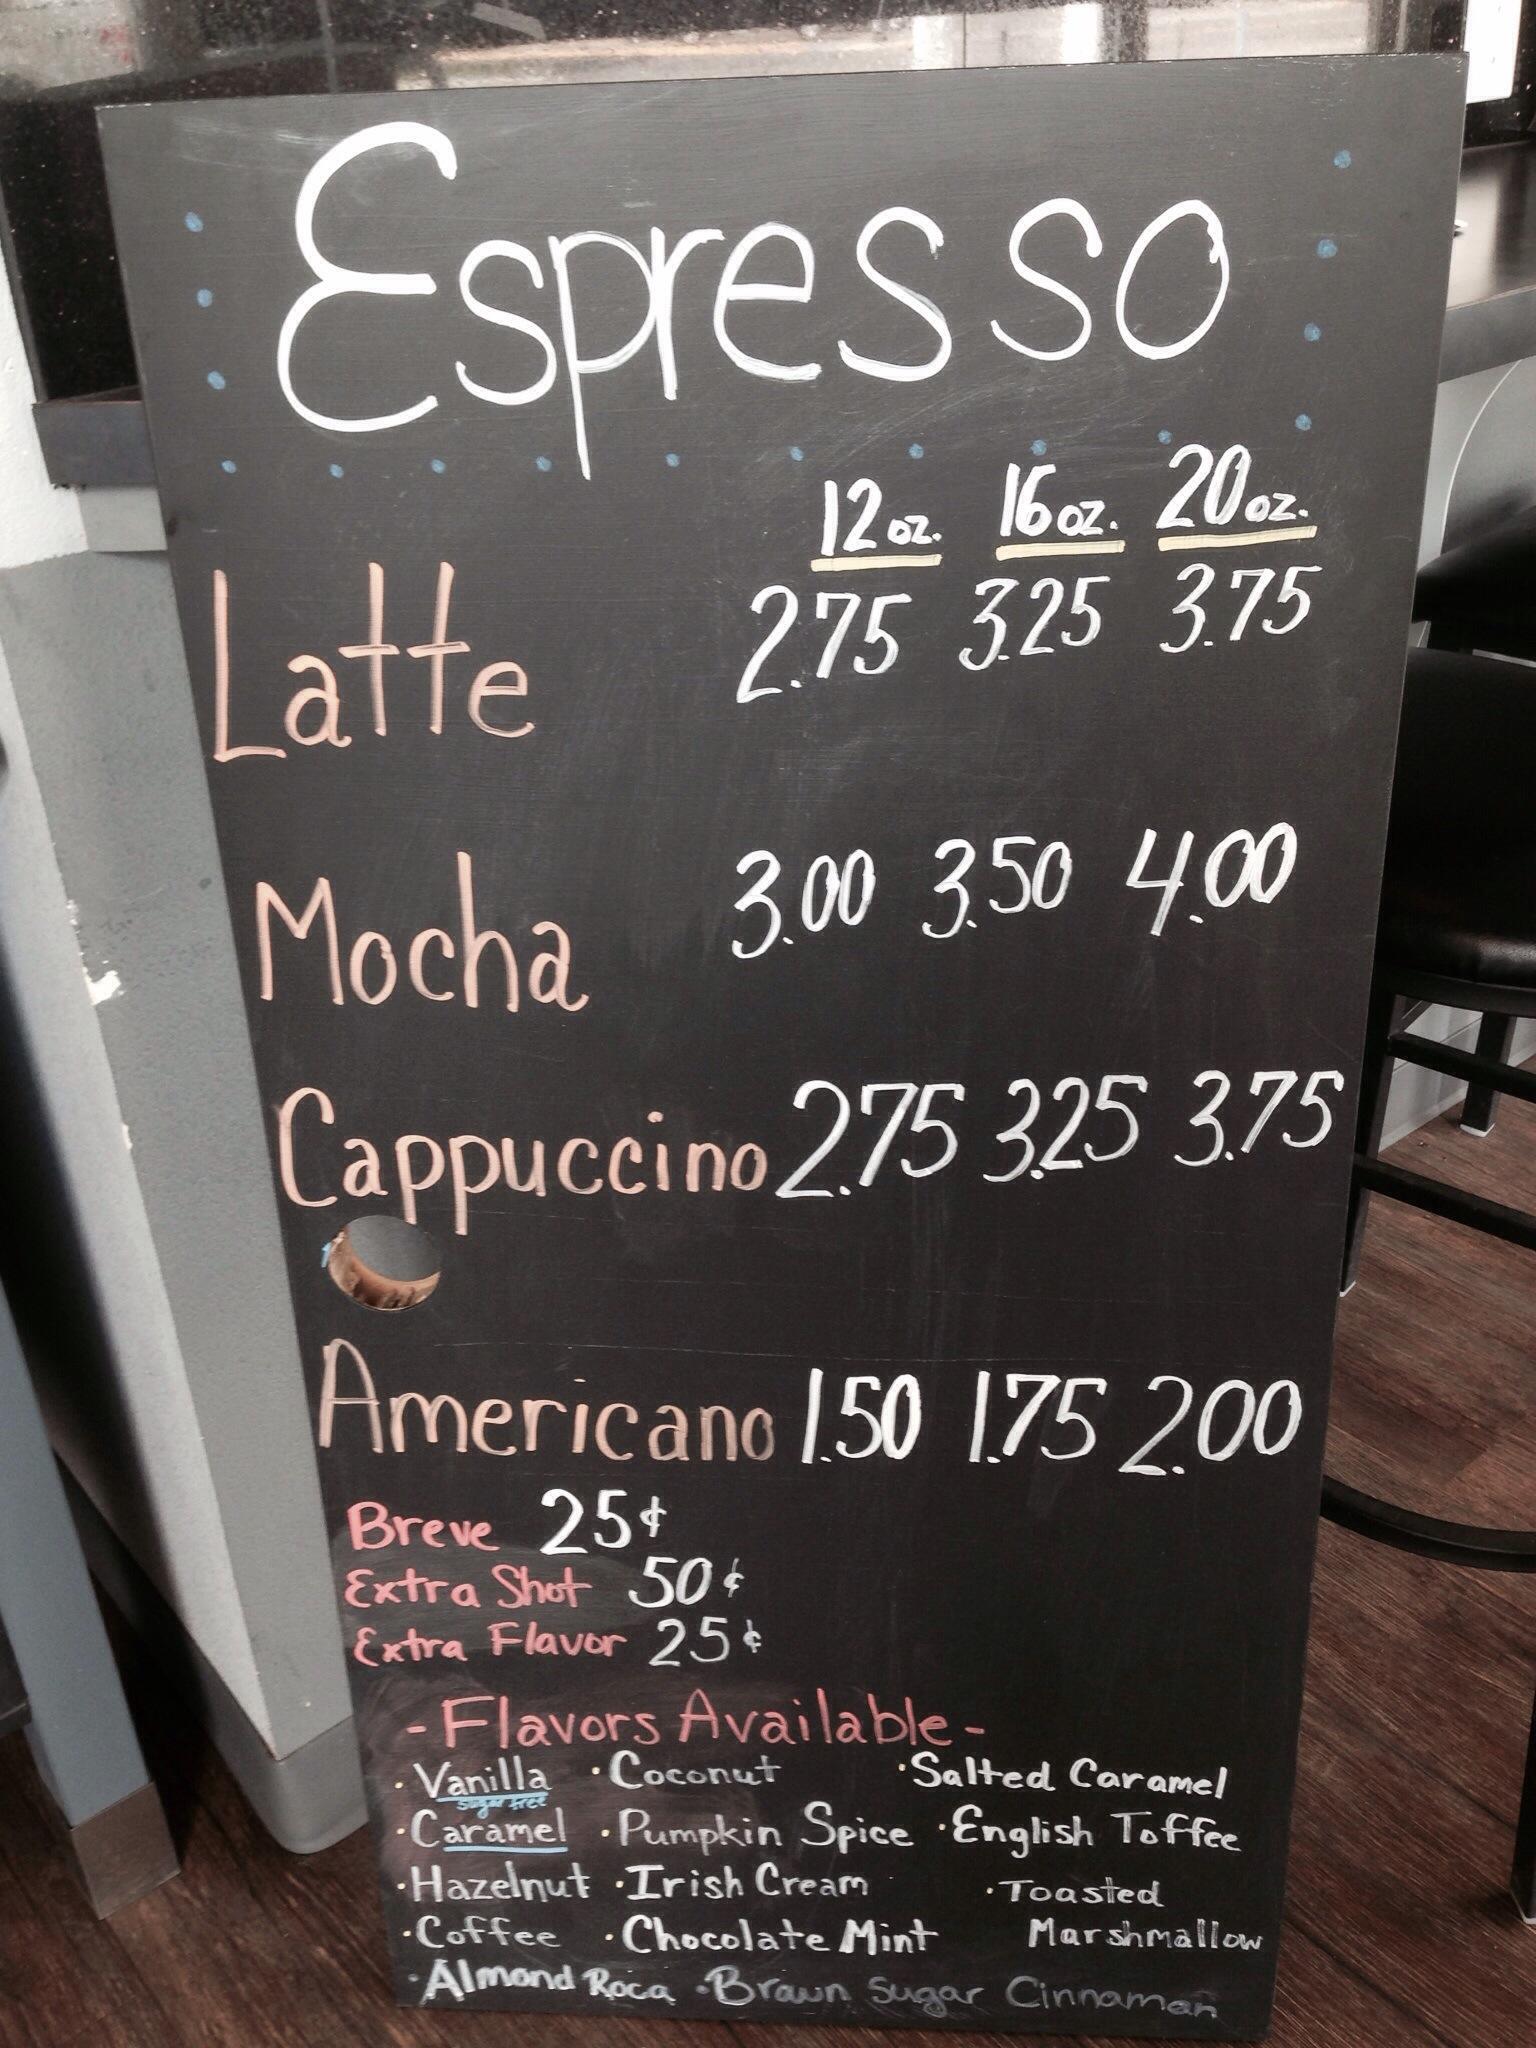 Espresso
12 oz. 16 oz. 20 oz.
Latte 2.75 3.25 3.75
Mocha 3.00 3.50 4.00
Cappuccino 2.75 3.25 3.75
Americano 1.50 1.75 2.00
Breve 25¢
Extra Shot 50¢
Extra Flavor 25¢
- Flavors Available -
· Vanilla · Coconut · Salted Caramel
sugar free
· Caramel · Pumpkin Spice · English Toffee
· Hazelnut · Irish Cream · Toasted
· Coffee · Chocolate Mint Marshmallow
· Almond Roca · Brown Sugar Cinnamon